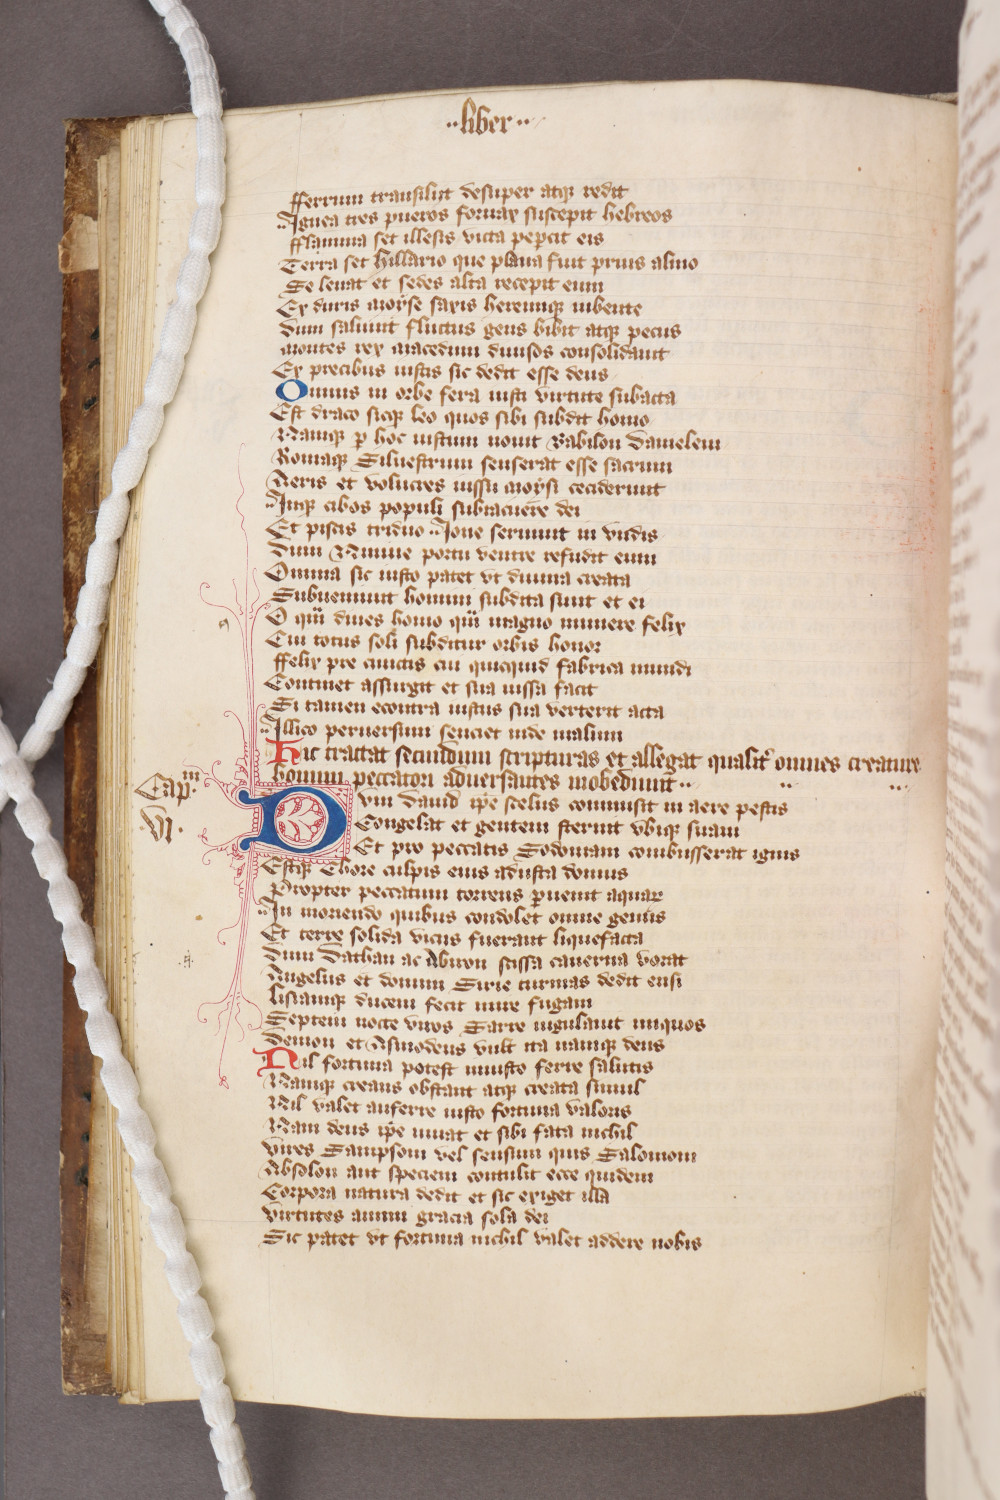 ·· liber ··
fferrum transiliit desuper atqz redit
Ignea tres pueros fornax suscepit hebreos
fflamma set illesis victa pepcit eis
Terra set hillario que plana fuit prius almo
Se leuat et sedes alta recepit eum
Ex duris moyse saxis heremiqz iubente
Dum saliunt fluctus gens bibit atqz pecus
montes rex macedum diuisos consolidauit
Ex precibus iustis sic dedit esse deus
Omnis in orbe fera iusti virtute subacta
Est draco sicqz leo quos sibi subdit homo
Namqz p hoc iustum nouit Babilon danielem
Romaqz Siluestrum senserat esse sacrum
Aeris et volucres iussu moysi ceciderunt
Inqz cibos populi subiacuere dei
Et piscis triduo Ione seruiuit in vndis
Dum Niniue portu ventre refudit eum
Omnia sic iusto patet vt diuina creata
Subueniunt homini subdita sunt et ei
O qm diues homo qm magno munere felix
Cui totus soli subditur orbis honor
ffelix pre cunctis cui quicquid fabrica mundi
Continet assurgit et sua iussa facit
Si tamen econtra iustus sua verterit acta
Illico peruersum senciet inde malum
Hic tractat secundum scripturas et allegat qualit' omnes creature
homini peccatori aduersantes inobediunt ··
Capm VI.
Dum dauid ipe scelus commisit in aere pestis
Congelat et gentem sternit vbiqz suam
Et pro peccatis Sodomam combusserat ignis
Estqz Chore culpis eius adusta domus
Propter peccatum torrens puenit aquar
In moriendo quibus condolet omne genus
Et terre solida vicus fuerant liquefacta
Dum Dathan ac Abiron scissa cauerna vorat
Angelus et domini Sirie turmas dedit ensi
lisiamqz ducem fecit inire fugam
Septem nocte viros Sarre iugulauit iniquos
Demon et Asmodeus vult ita namqz deus
Nil fortuna potest iniusto ferre salutis
Namqz creans obstant atqz creata simul
Nil valet auferre iusto fortuna valoris
Nam deus ipe iuuat et sibi fata nichil
Vires Sampsom vel sensum quis Salomoni
Absolon aut speciem contulit ecce quidem
Corpora natura dedit et sic exiget illa
Virtutes animi gracia sola dei
Sic patet vt fortuna nichil valet addere nobis